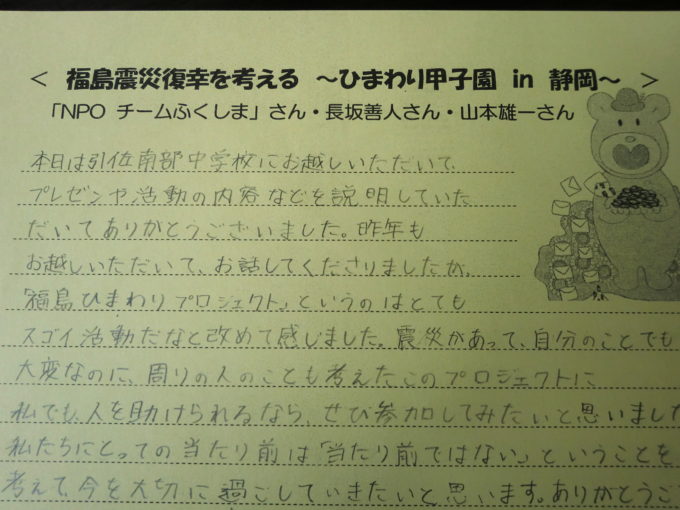 ＜ 福島震災復幸を考える ～ひまわり甲子園 in 静岡～ ＞
「NPO チームふくしま」さん・長坂善人さん・山本雄一さん
本日は引佐南部中学校にお越しいただいて、
プレゼンや活動の内容などを説明していた
だいてありがとうございました。昨年も
お越しいただいて、お話してくださりましたが、
「福島ひまわりプロジェクト」というのはとても
スゴイ活動だなと改めて感じました。震災があって、自分のことでも
大変なのに、周りの人のことも考えたこのプロジェクトに
私でも人を助けられるなら、ぜひ参加してみたいと思いました
私たちにとっての当たり前は「当たり前ではない」ということを
考えて、今を大切に過ごしていきたいと思います。ありがとうご